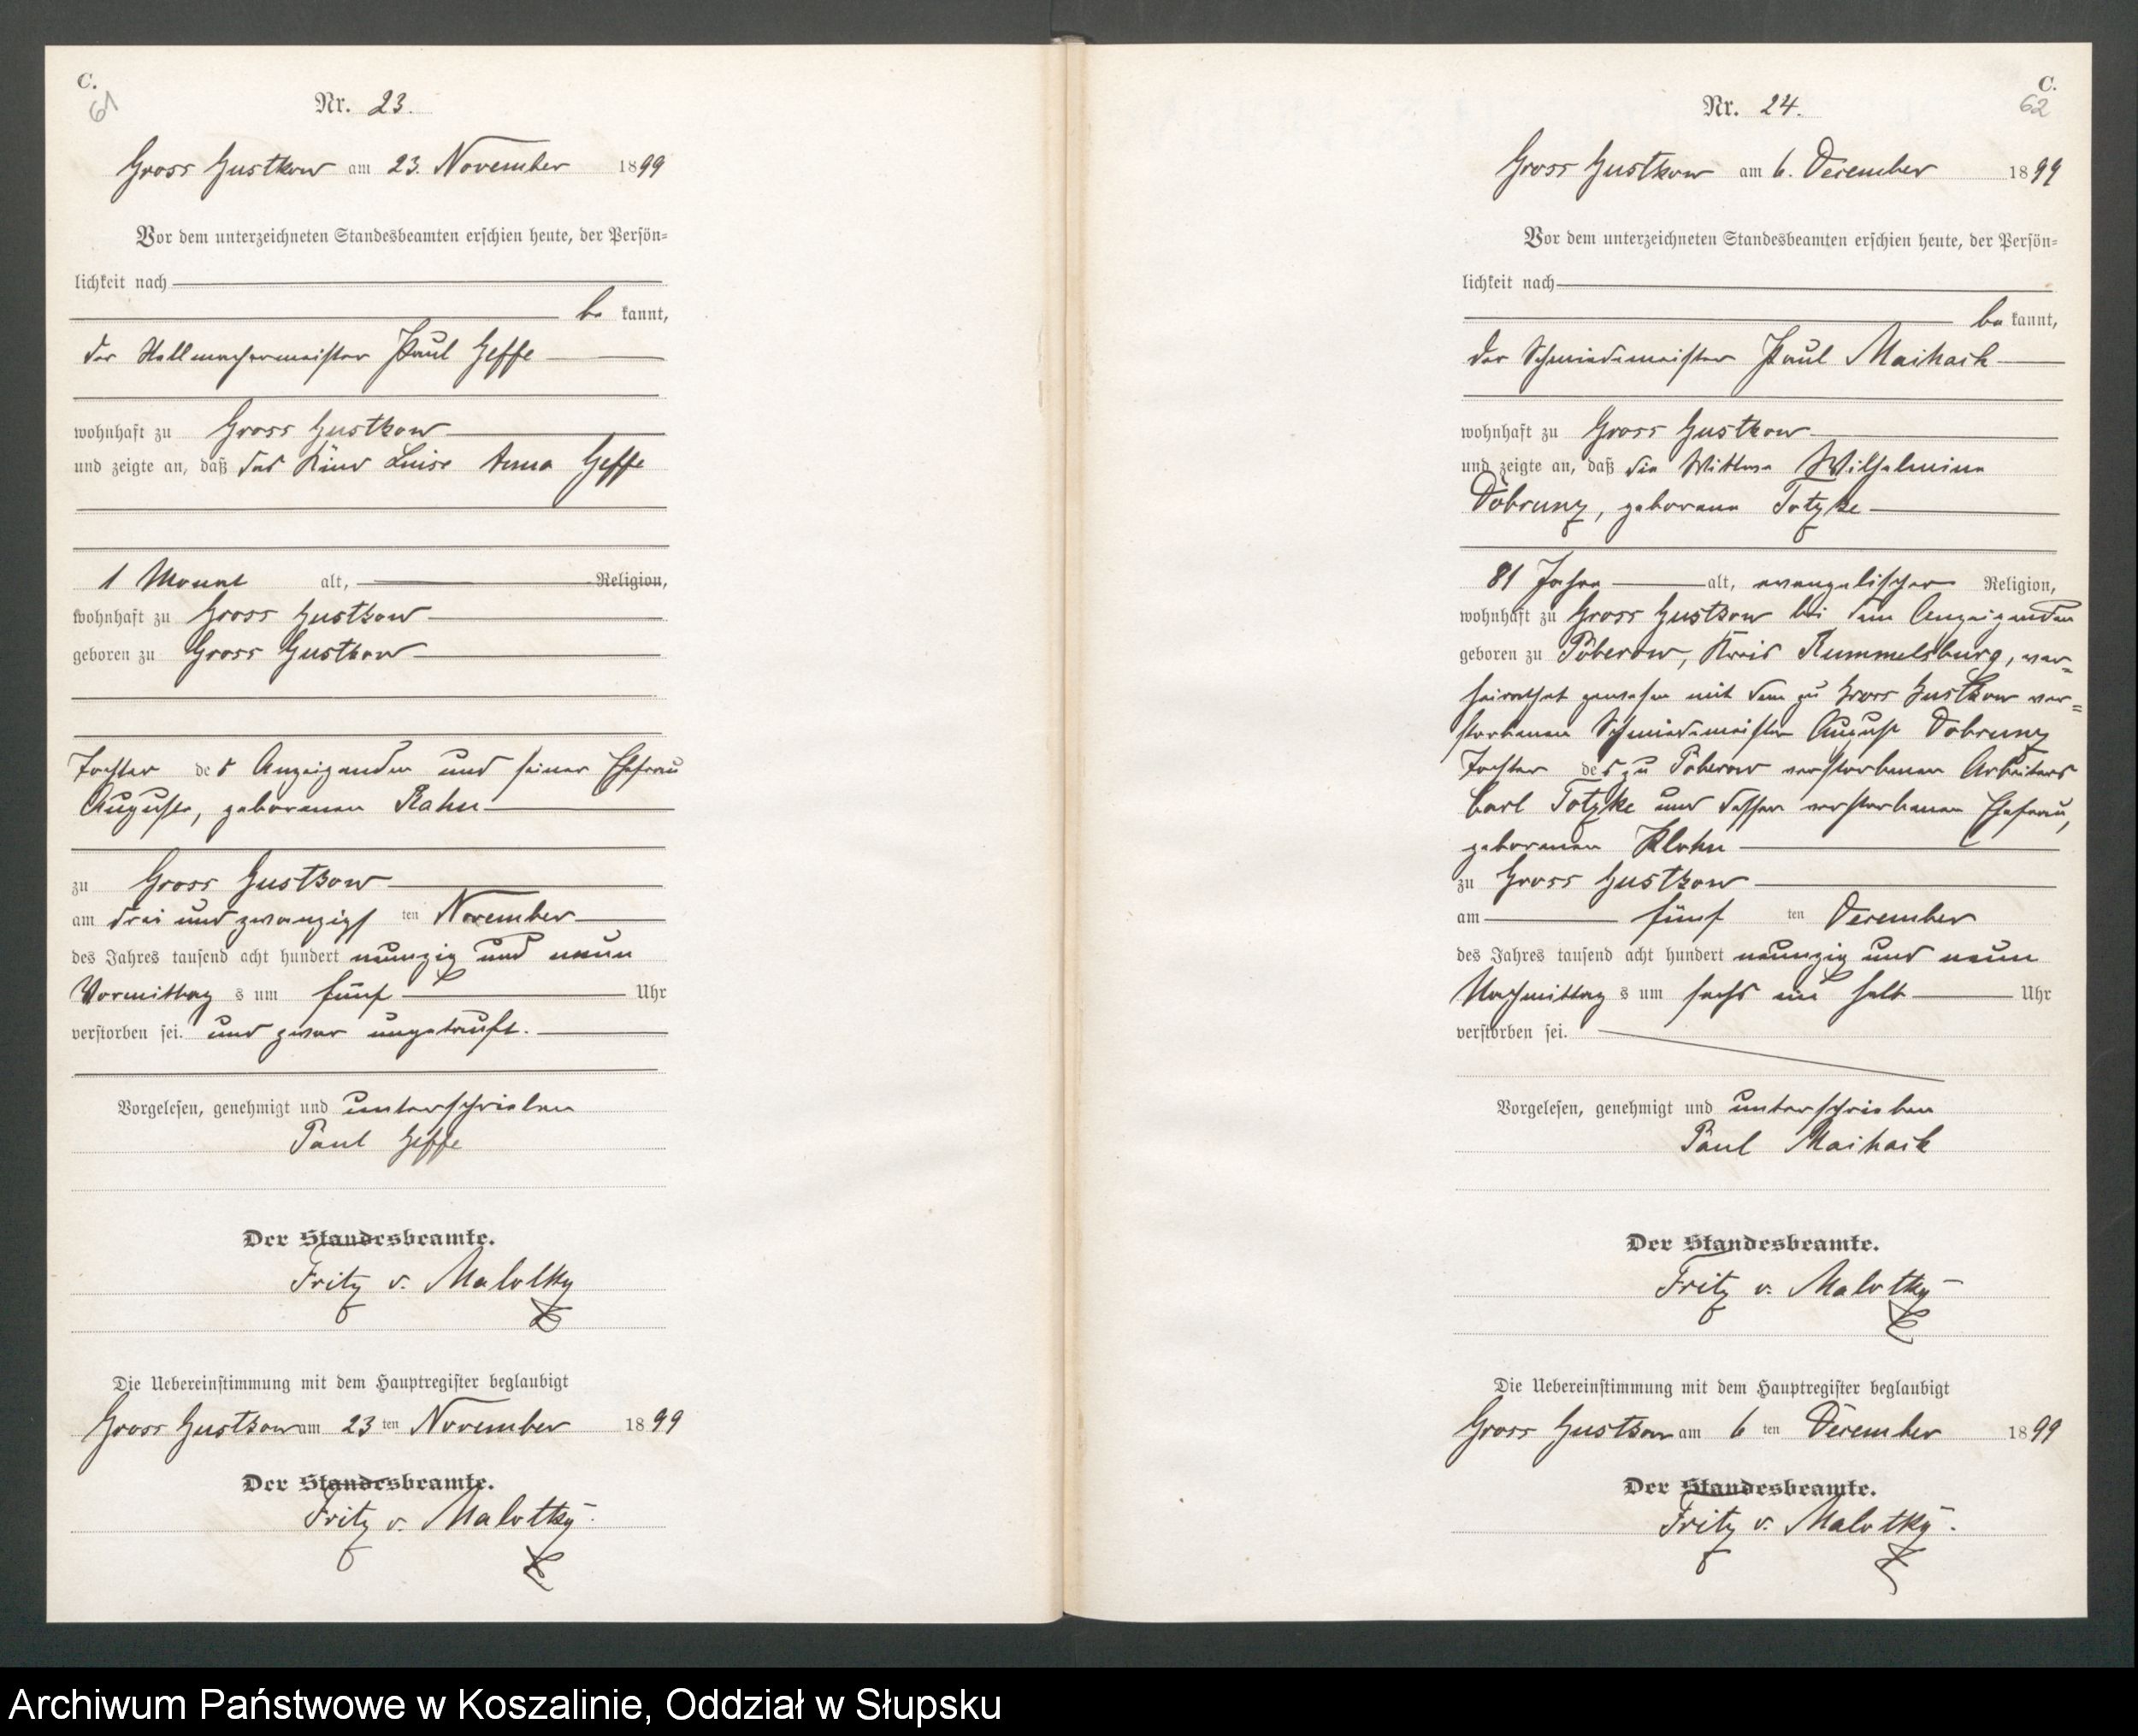 C.
61
Nr. 23.
Gross Gustkow am 23. November 1899
Vor dem unterzeichneten Standesbeamten erschien heute, der Persön=
lichkeit nach
be kannt,
der Stellmachermeister Paul Geffe
wohnhaft zu Gross Gustkow
und zeigte an, daß das Kind Luise Anna Geffe
1 Monat alt, Religion,
wohnhaft zu Gross Gustkow
geboren zu Gross Gustkow
Tochter des Anzeigenden und seiner Ehefrau
Auguste, geborenen Rahn
zu Gross Gustkow
am drei und zwanzigs ten November
des Jahres tausend acht hundert neunzig und neun
Vormittag s um fünf Uhr
verstorben sei. und zwar ungetauft.
Vorgelesen, genehmigt und unterschrieben
Paul Geffe
Der Standesbeamte.
Fritz v. Malotky
Die Uebereinstimmung mit dem Hauptregister beglaubigt
Gross Gustkow am 23 ten November 1899
Der Standesbeamte.
Fritz v. Malotky.
C.
62
Nr. 24.
Gross Gustkow am 6. December 1899
Vor dem unterzeichneten Standesbeamten erschien heute, der Persön=
lichkeit nach
be kannt,
der Schmiedemeister Paul Maihack
wohnhaft zu Gross Gustkow
und zeigte an, daß die Wittwe Wilhelmine
Dobrunz, geborene Totzke
81 Jahre alt, evangelischer Religion,
wohnhaft zu Gross Gustkow bei dem Anzeigenden
geboren zu Poberow, Kreis Rummelsburg, ver=
heirathet gewesen mit dem zu Gross Gustkow ver=
storbenen Schmiedemeister August Dobrunz
Tochter des zu Poberow verstorbenen Arbeiters
Carl Totzke und dessen verstorbenen Ehefrau,
geborenen Klohn
zu Gross Gustkow
am fünf ten December
des Jahres tausend acht hundert neunzig und neun
Nachmittag s um sechs ein halb Uhr
verstorben sei.
Vorgelesen, genehmigt und unterschrieben
Paul Maihack
Der Standesbeamte.
Fritz v. Malotky
Die Uebereinstimmung mit dem Hauptregister beglaubigt
Gross Gustkow am 6 ten December 1899
Der Standesbeamte.
Fritz v. Malotky.
Archiwum Państwowe w Koszalinie, Oddział w Słupsku